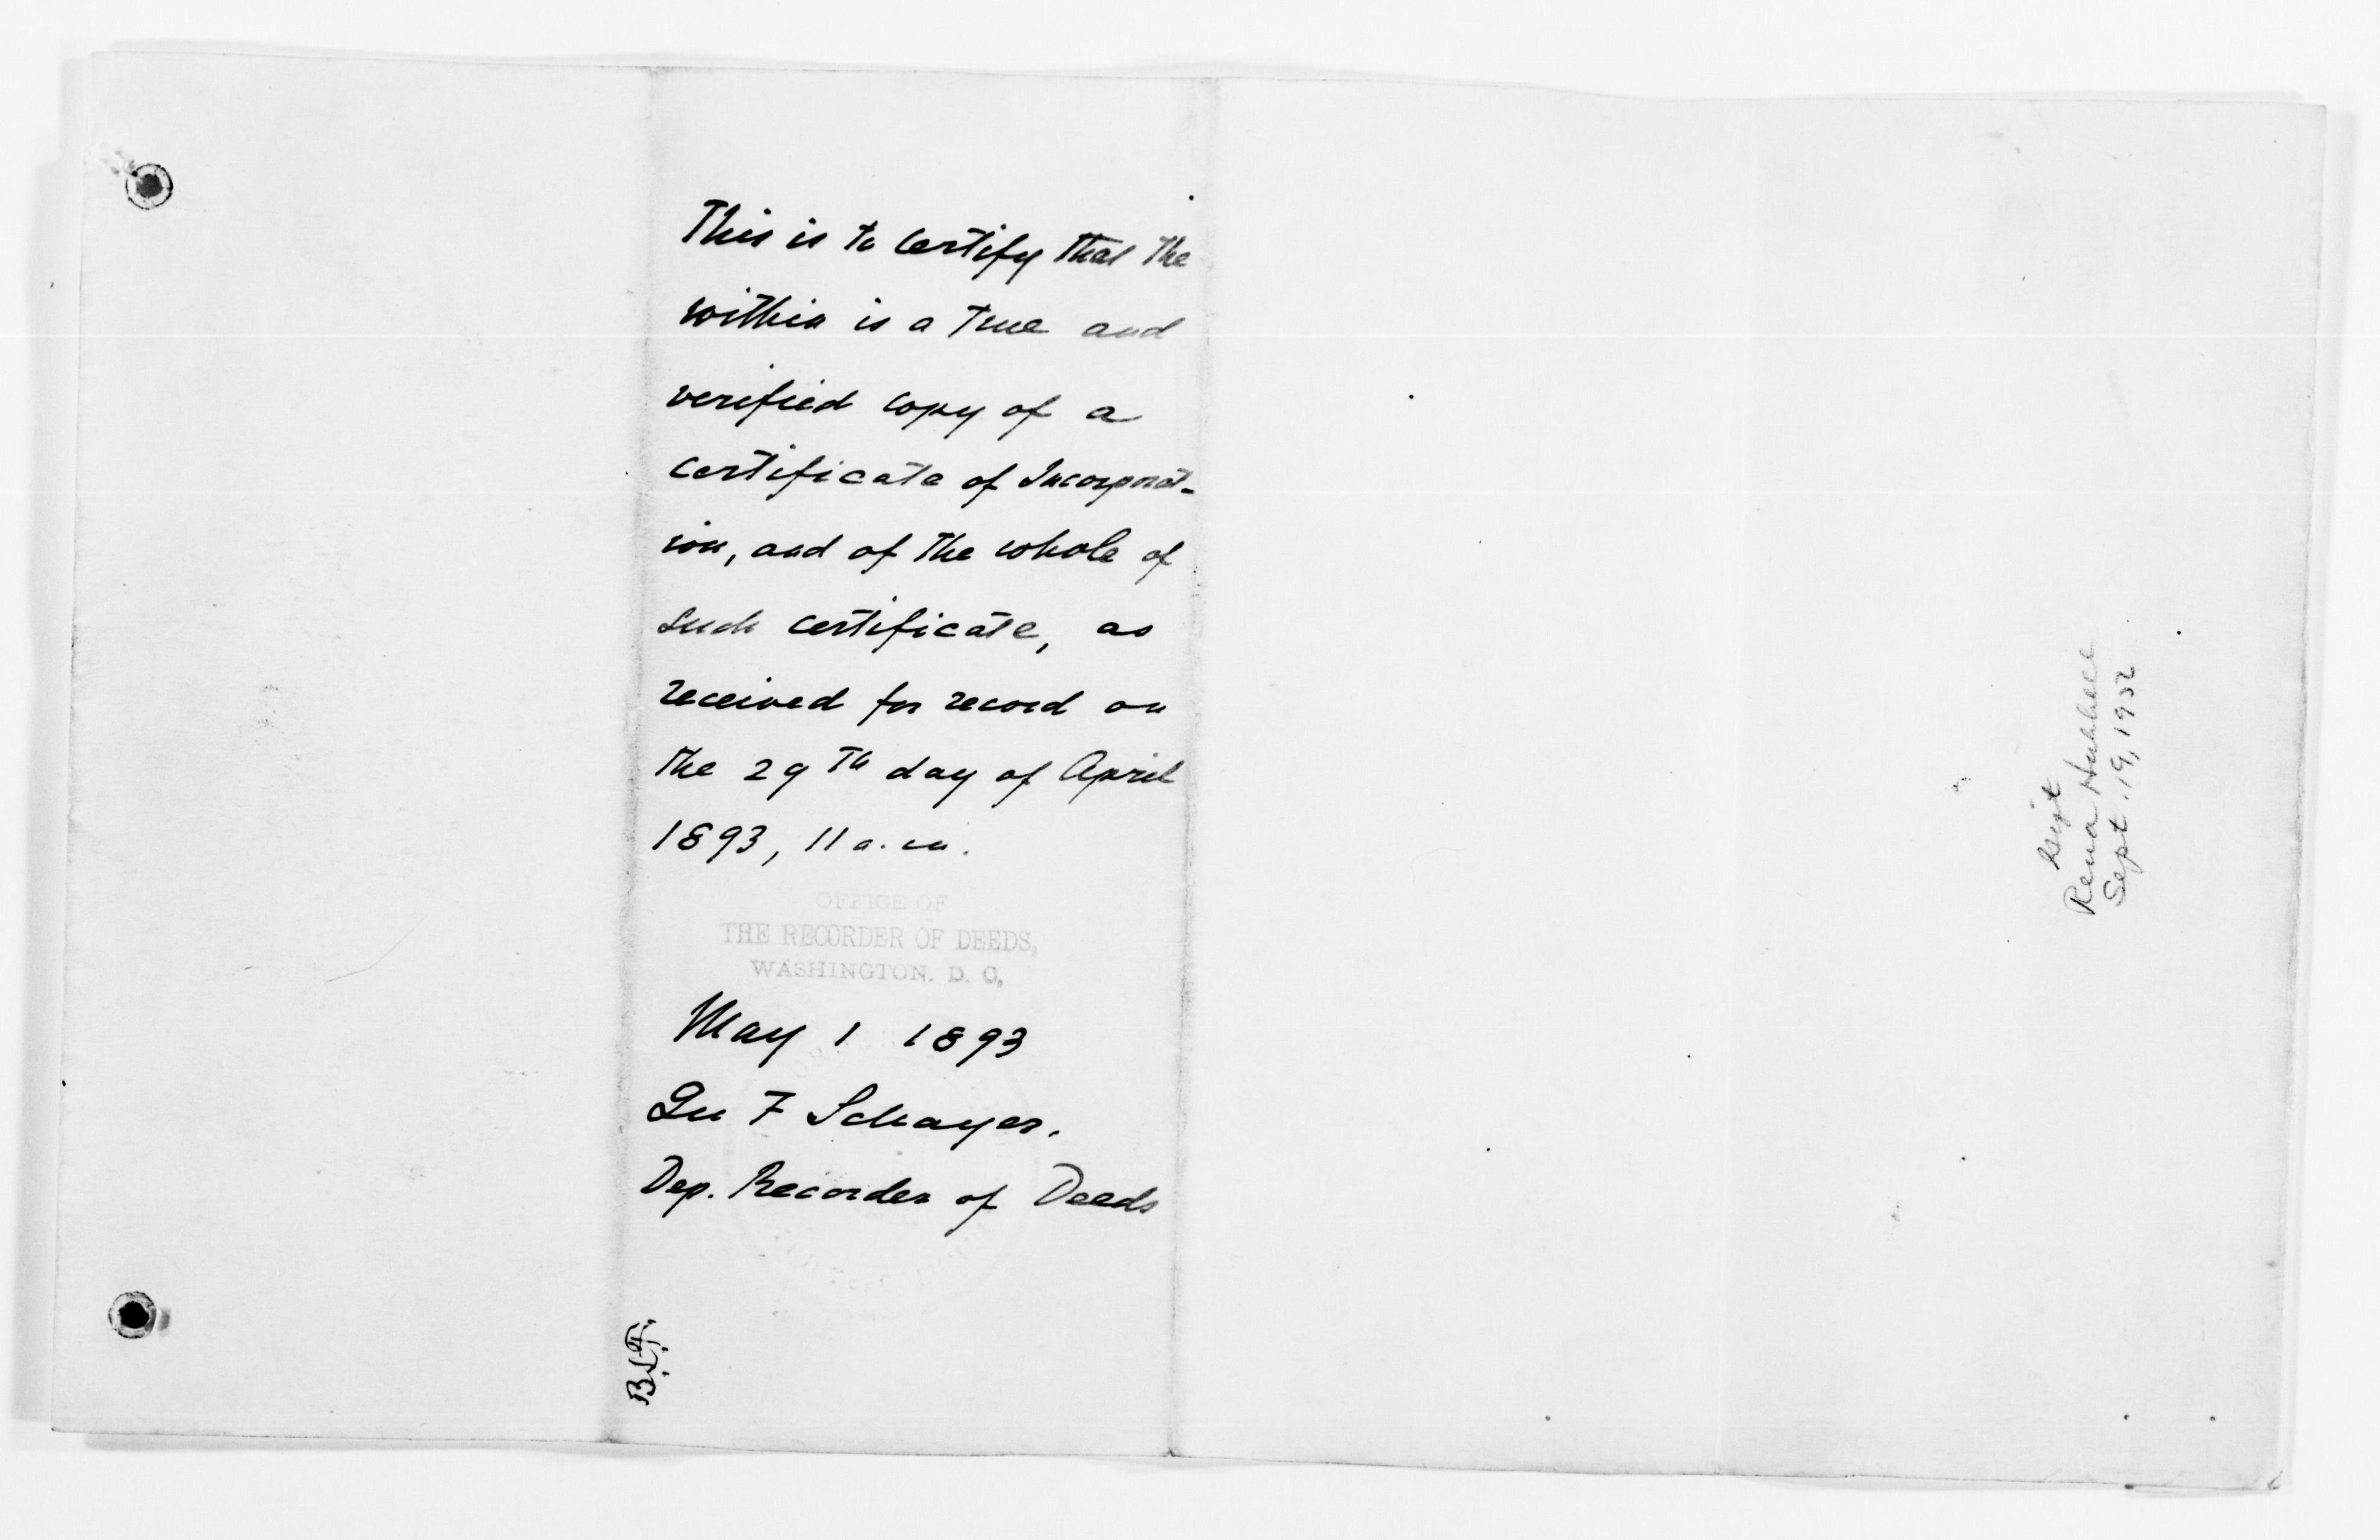 This is to certify that the
within is a true and
verified copy of a
certificate of Incorporat-
ion, and of the whole of
such certificate, as
received for record on
the 29th day of April
1893, 11 a.m.
OFFICE OF
THE RECORDER OF DEEDS,
WASHINGTON. D. C.
May 1 1893
Geo F Schayer.
Dep. Recorder of Deeds
Gift
Rena Hubbell
Sept. 19, 1932